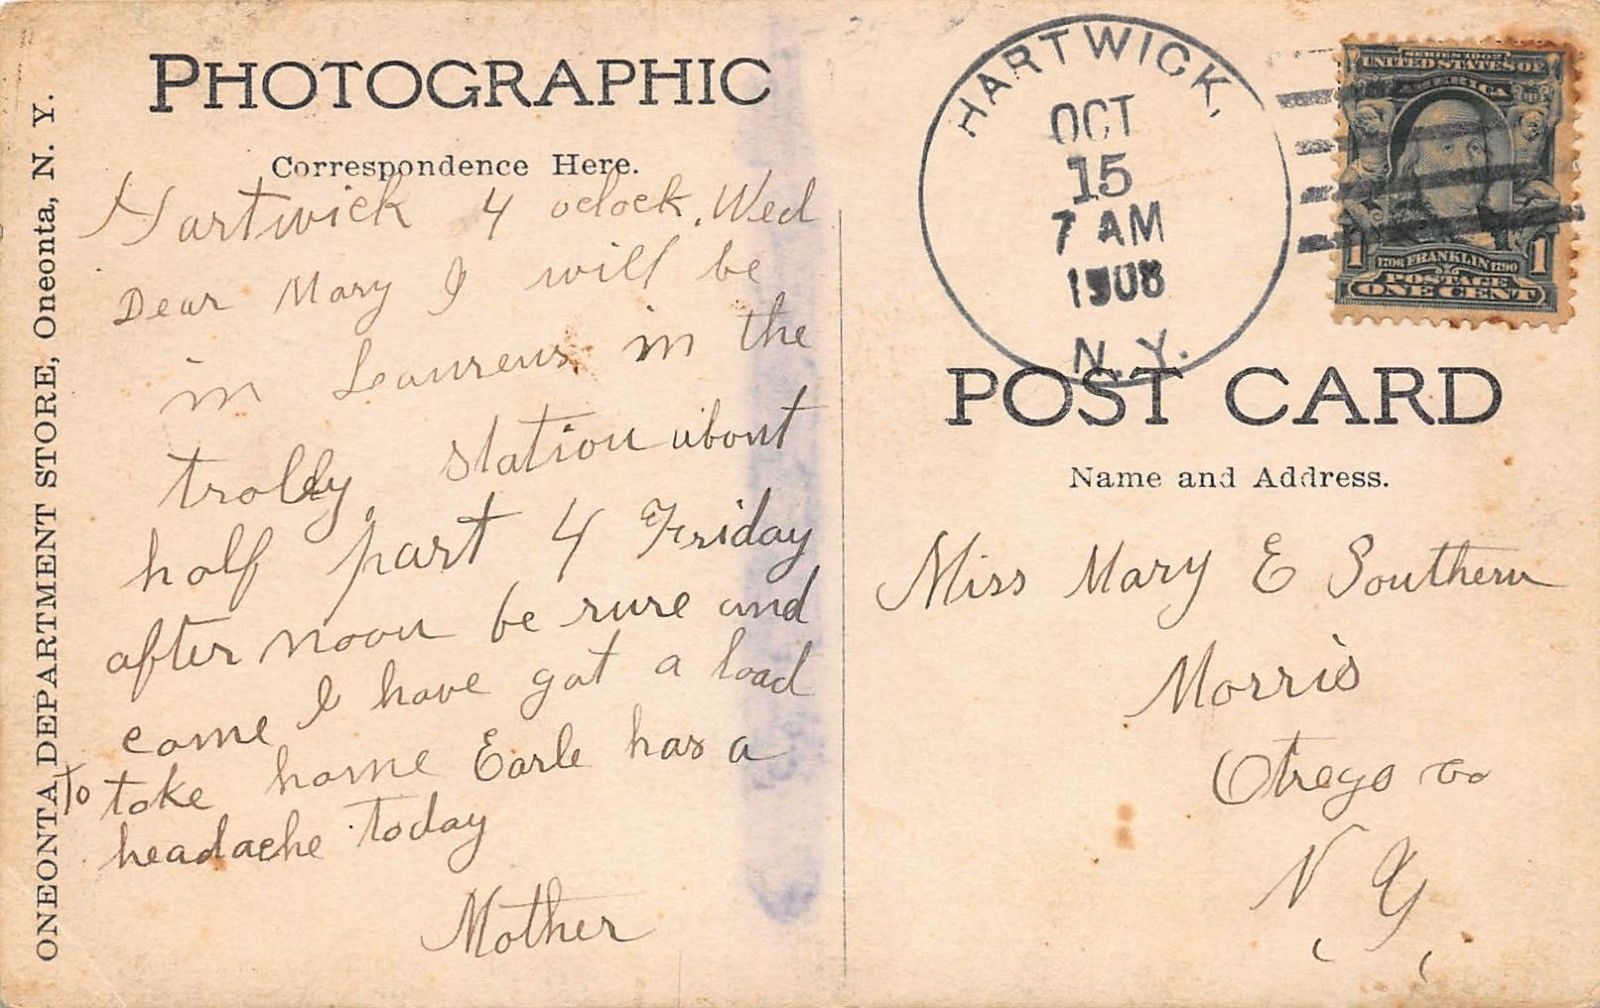 PHOTOGRAPHIC
Correspondence Here.
Hartwick 4 oclock. Wed
Dear Mary I will be
in Laurens in the
trolley station about
half past 4 Friday
after noon be sure and
come I have got a load
to take home Earle has a
headache today
Mother
ONEONTA DEPARTMENT STORE, Oneonta, N. Y.
HARTWICK,
OCT
15
7 AM
1908
N.Y.
SERIES 1902
UNITED STATES OF
AMERICA
1 1
1706 FRANKLIN 1790
POSTAGE
ONE CENT
POST CARD
Name and Address.
Miss Mary E Southern
Morris
Otsego Co
N Y,